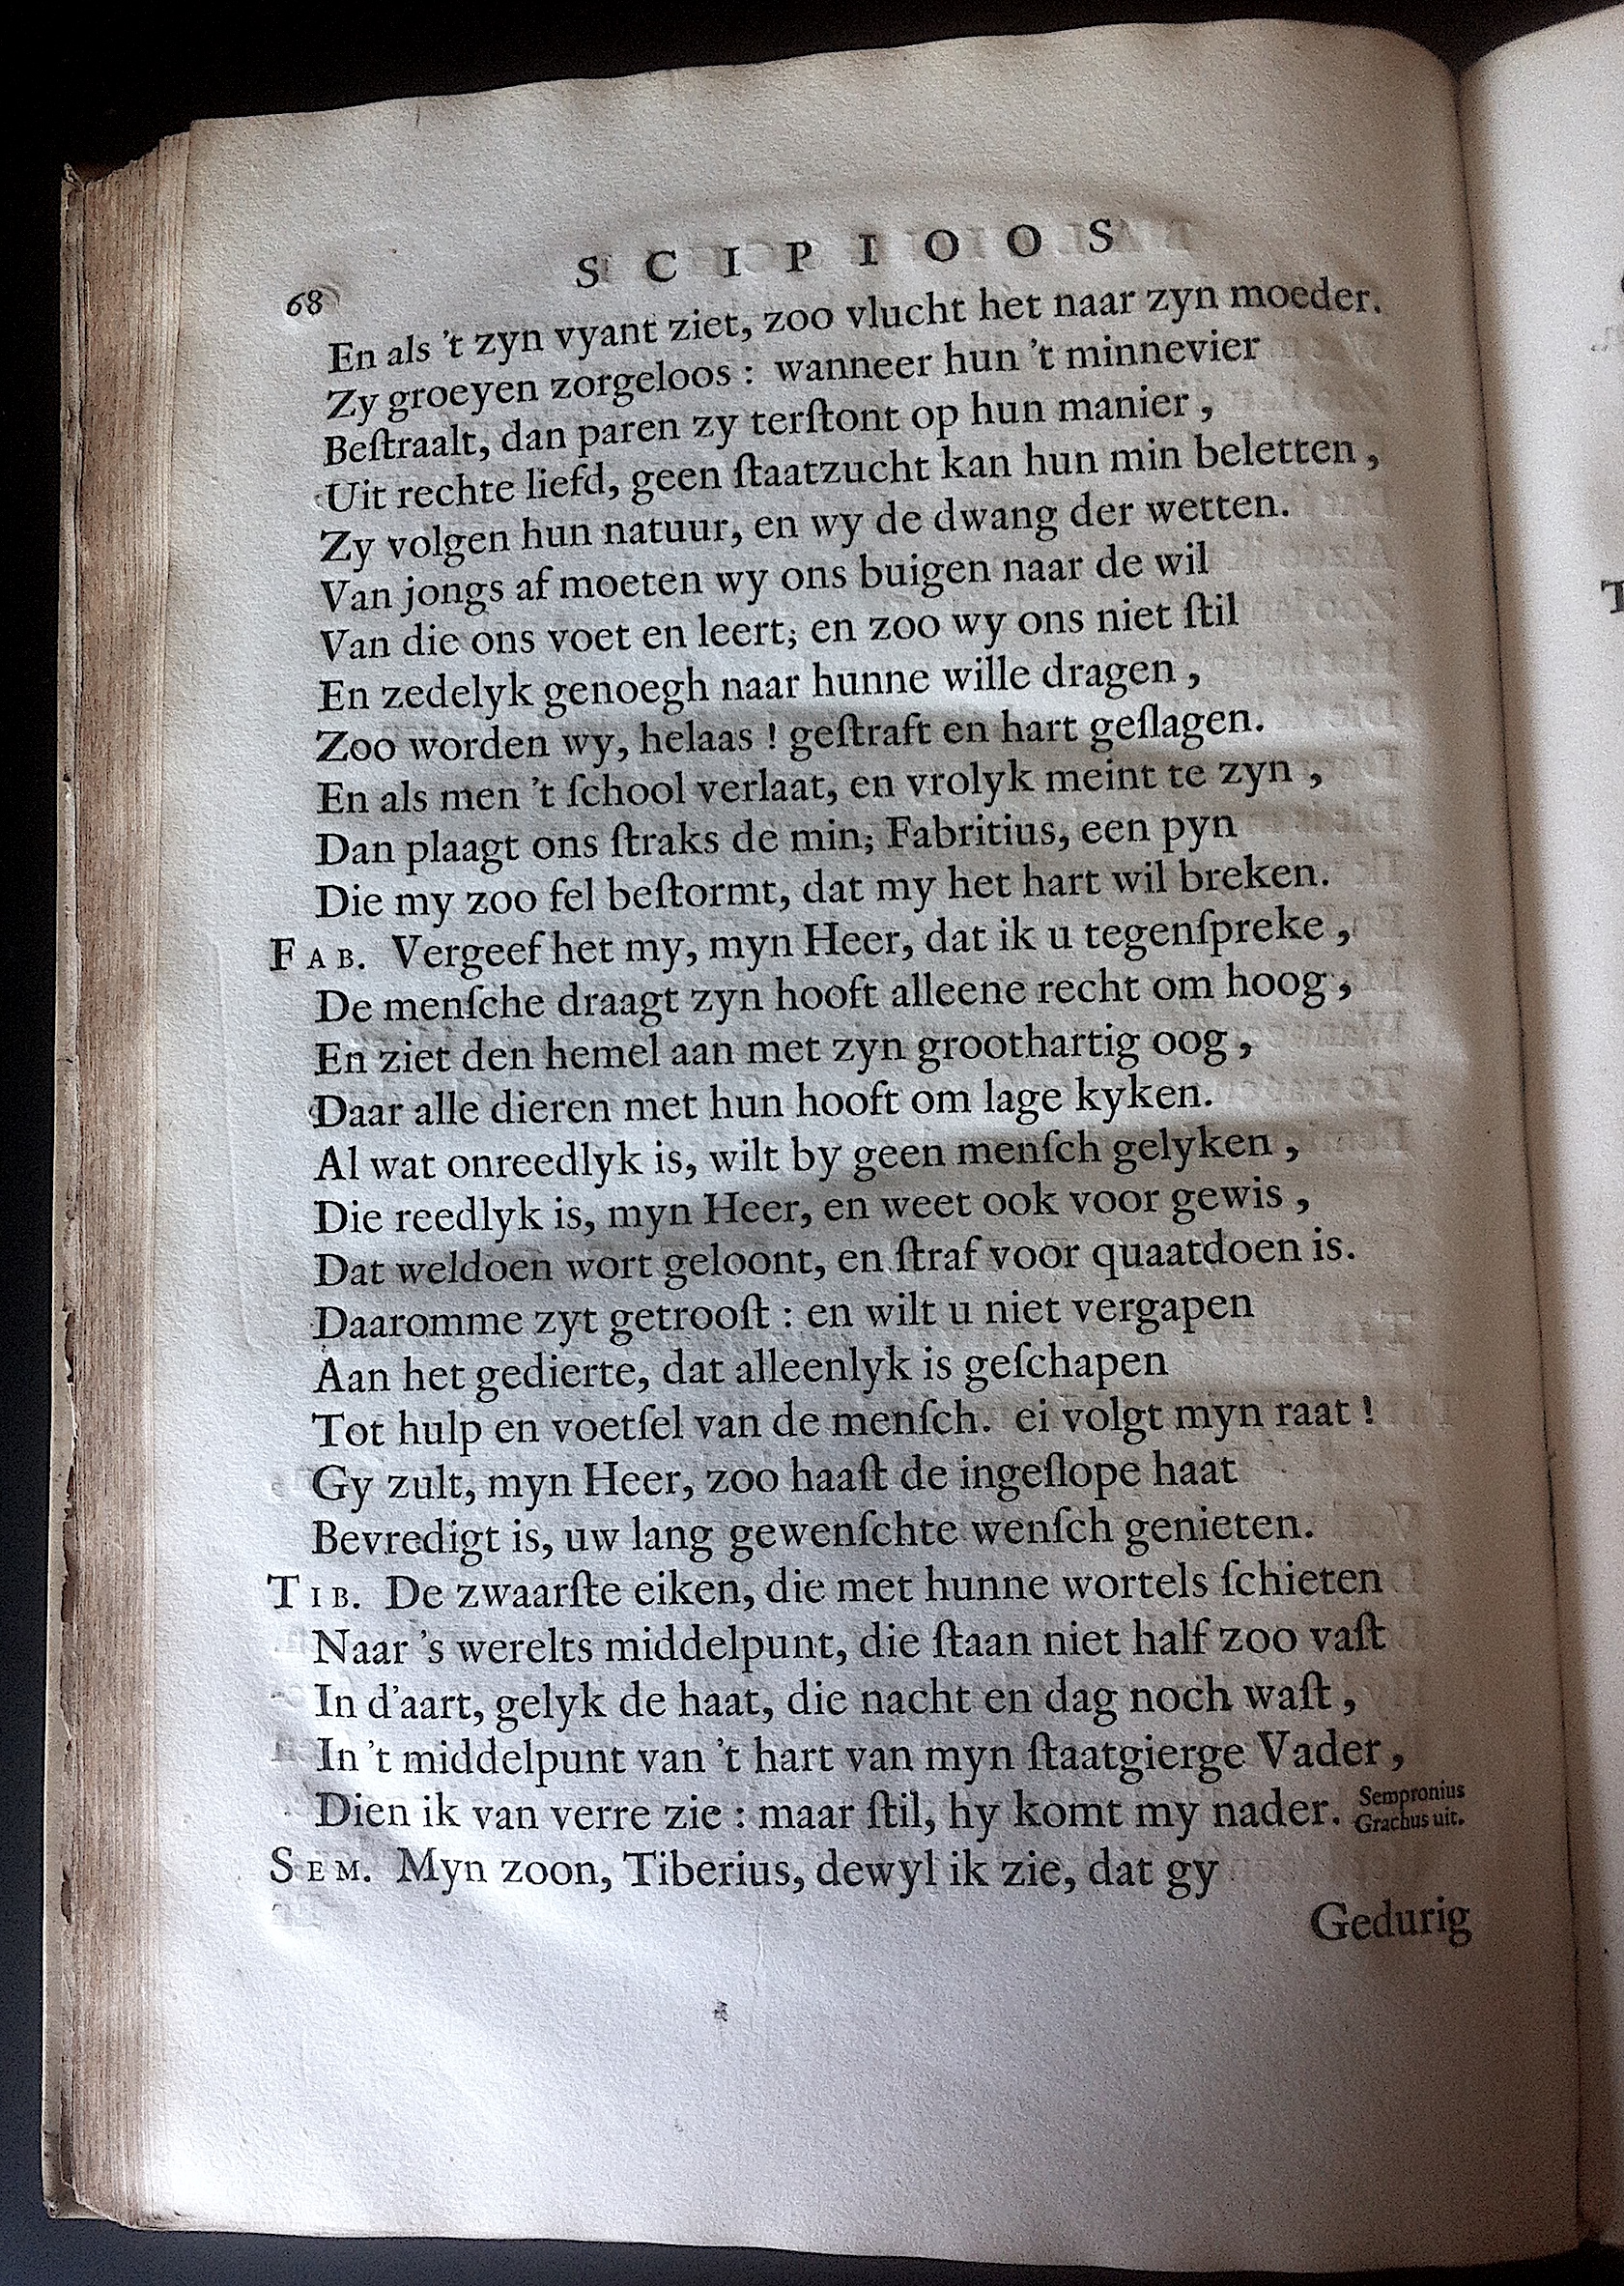 SCIPIOOS
68
En als 't zyn vyant ziet, zoo vlucht het naar zyn moeder.
Zy groeyen zorgeloos : wanneer hun 't minnevier
Beſtraalt, dan paren zy terſtont op hun manier ,
Uit rechte liefd, geen ſtaatzucht kan hun min beletten ,
Zy volgen hun natuur, en wy de dwang der wetten.
Van jongs af moeten wy ons buigen naar de wil
Van die ons voet en leert; en zoo wy ons niet ſtil
En zedelyk genoegh naar hunne wille dragen ,
Zoo worden wy, helaas ! geſtraft en hart geſlagen.
En als men 't ſchool verlaat, en vrolyk meint te zyn ,
Dan plaagt ons ſtraks de min; Fabritius, een pyn
Die my zoo fel beſtormt, dat my het hart wil breken.
FAB. Vergeef het my, myn Heer, dat ik u tegenſpreke ,
De menſche draagt zyn hooft alleene recht om hoog ,
En ziet den hemel aan met zyn groothartig oog ,
Daar alle dieren met hun hooft om lage kyken.
Al wat onreedlyk is, wilt by geen menſch gelyken ,
Die reedlyk is, myn Heer, en weet ook voor gewis ,
Dat weldoen wort geloont, en ſtraf voor quaatdoen is.
Daaromme zyt getrooſt : en wilt u niet vergapen
Aan het gedierte, dat alleenlyk is geſchapen
Tot hulp en voetſel van de menſch. ei volgt myn raat !
Gy zult, myn Heer, zoo haaſt de ingeſlope haat
Bevredigt is, uw lang gewenſchte wenſch genieten.
TIB. De zwaarſte eiken, die met hunne wortels ſchieten
Naar 's werelts middelpunt, die ſtaan niet half zoo vaſt
In d'aart, gelyk de haat, die nacht en dag noch waſt ,
In 't middelpunt van 't hart van myn ſtaatgierge Vader ,
Dien ik van verre zie : maar ſtil, hy komt my nader. Sempronius
Grachus uit.
SEM. Myn zoon, Tiberius, dewyl ik zie, dat gy
Gedurig